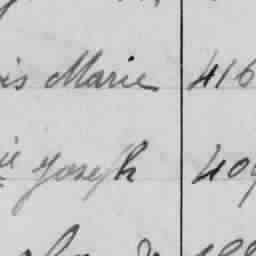 is Marie 416
ie Joseph 409